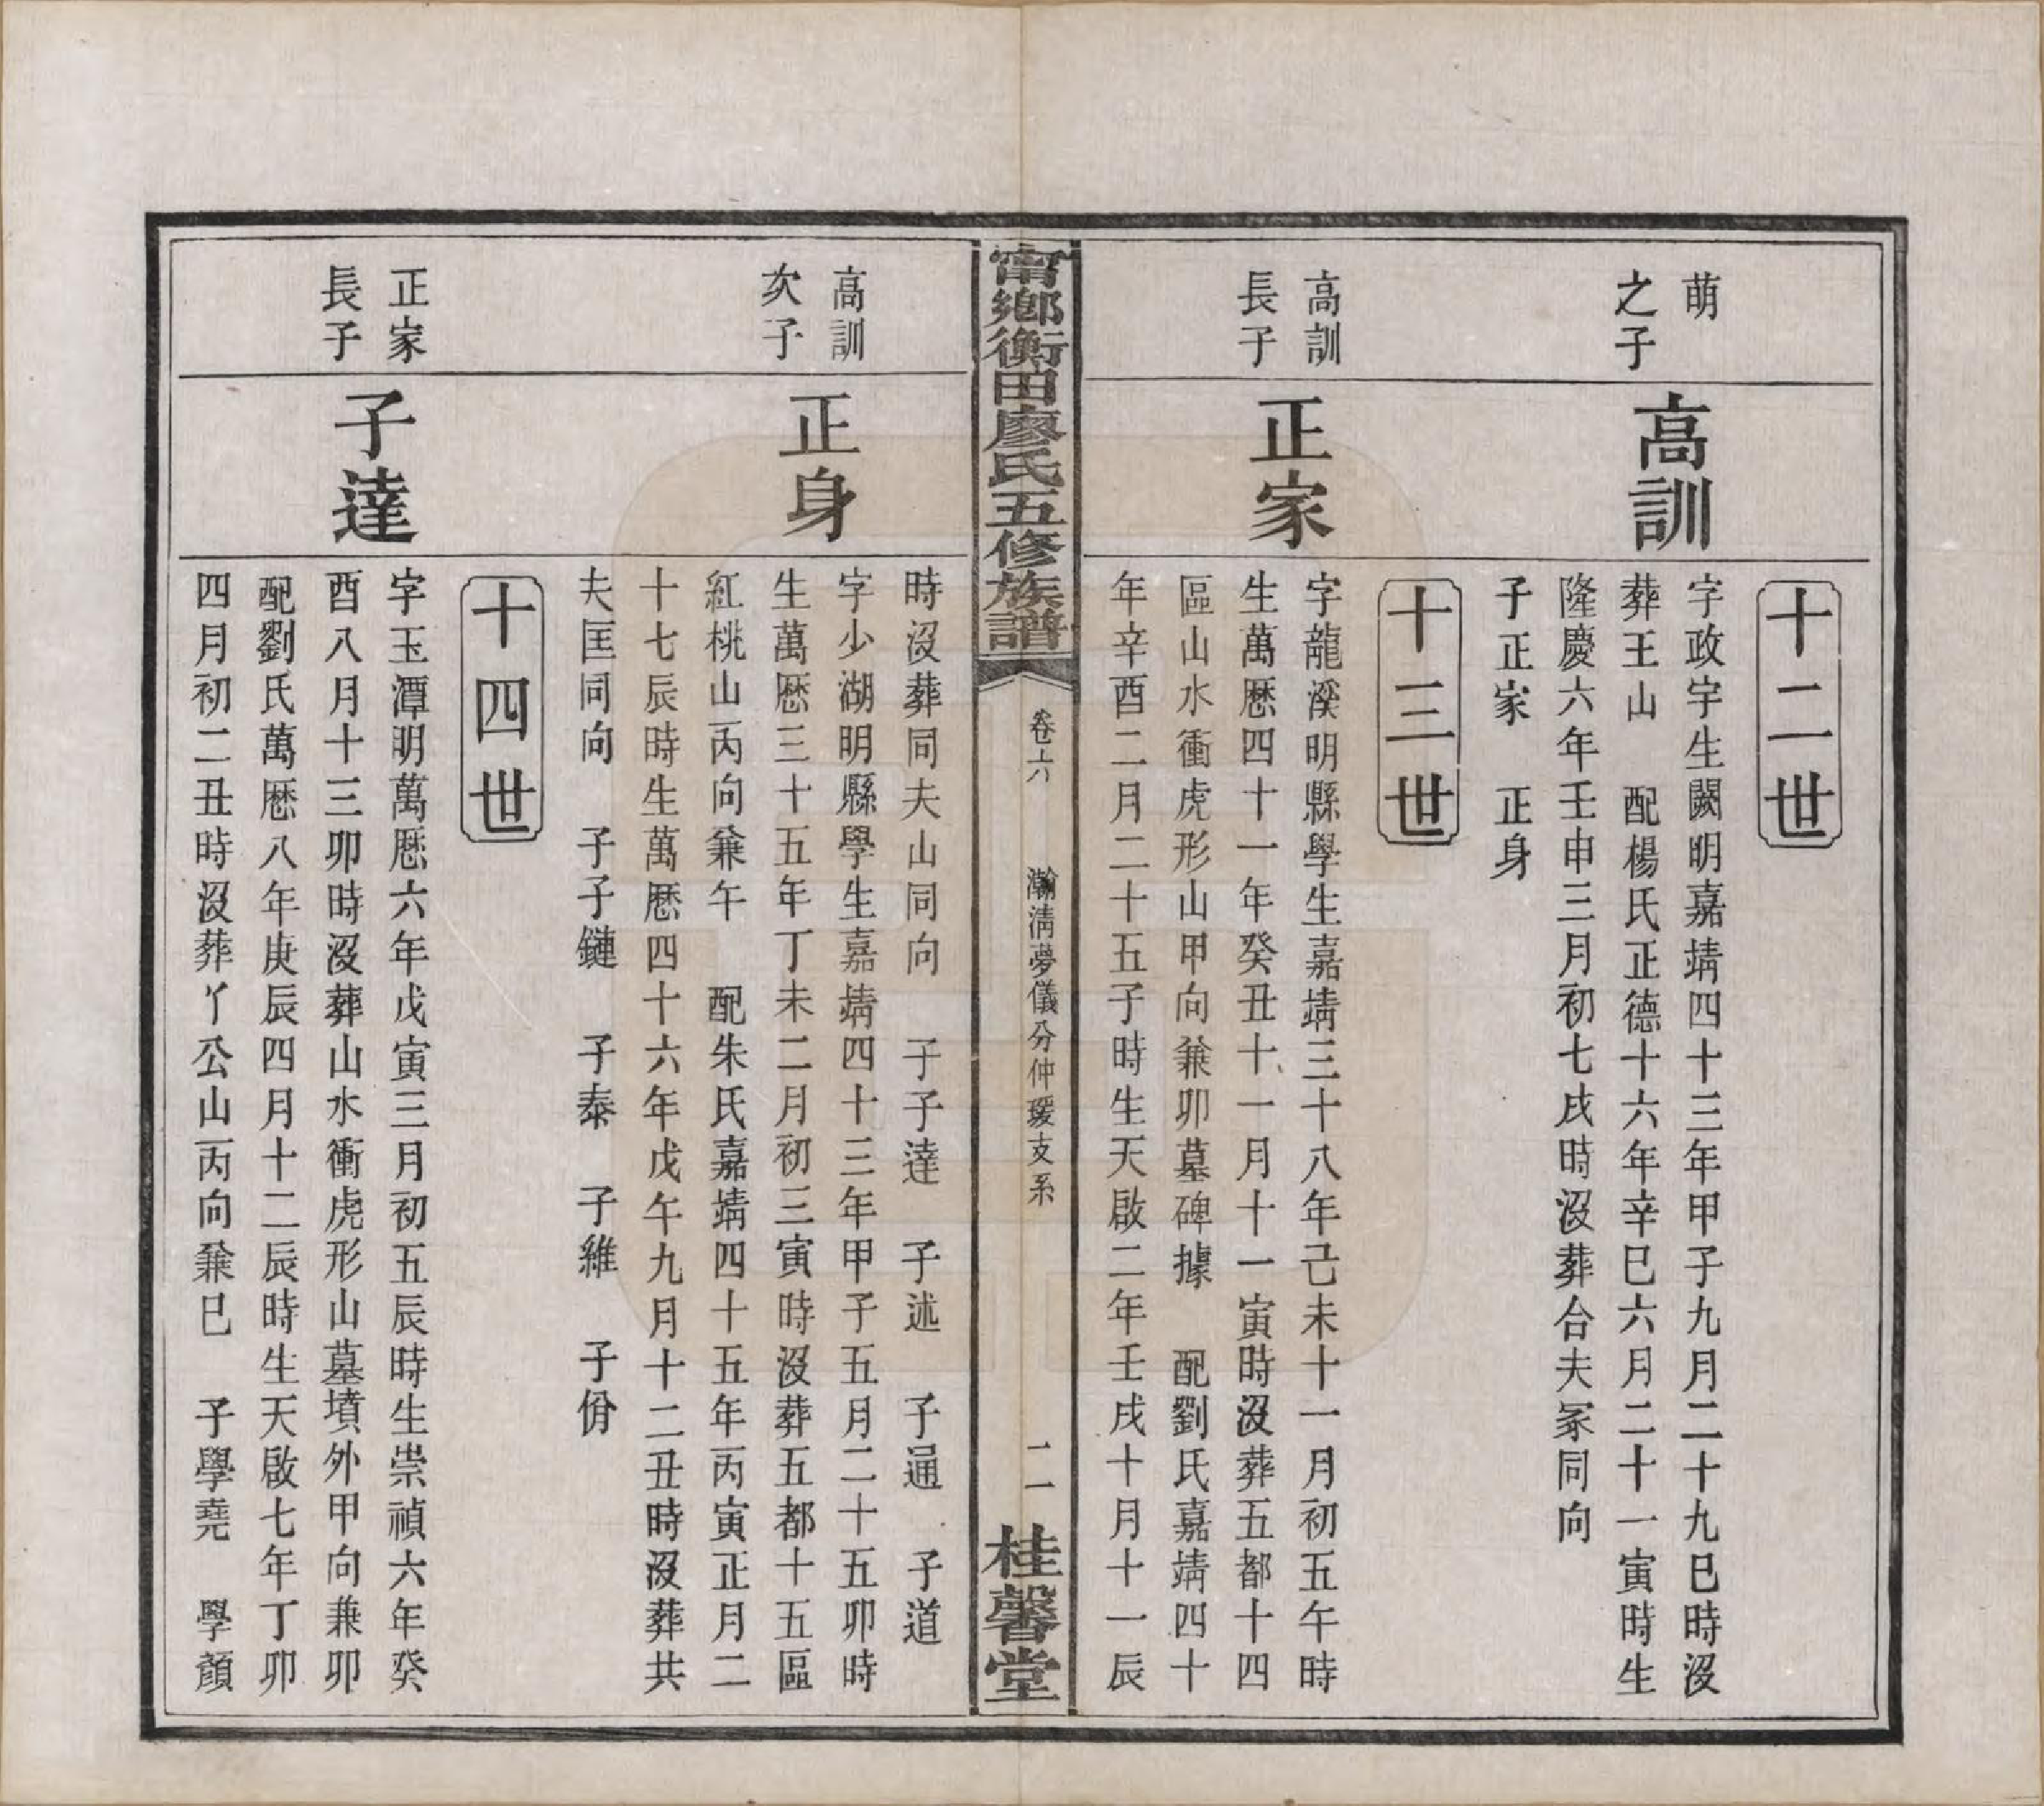 十二世
萌
之子
高訓
字政宇生闕明嘉靖四十三年甲子九月二十九巳時沒
葬王山　配楊氏正德十六年辛巳六月二十一寅時生
隆慶六年壬申三月初七戌時沒葬合夫冢同向
子正家　正身
十三世
高訓
長子
正家
字龍溪明縣學生嘉靖三十八年己未十一月初五午時
生萬厯四十一年癸丑十一月十一寅時沒葬五都十四
區山水衝虎形山甲向兼卯墓碑據　配劉氏嘉靖四十
年辛酉二月二十五子時生天啟二年壬戌十月十一辰
甯鄉衡田廖氏五修族譜
卷六　瀚清夢儀分仲瑗支系
二一
桂馨堂
時沒葬同夫山同向　子子達　子述　子通　子道
高訓
次子
正身
字少湖明縣學生嘉靖四十三年甲子五月二十五卯時
生萬厯三十五年丁未二月初三寅時沒葬五都十五區
紅桃山丙向兼午　配朱氏嘉靖四十五年丙寅正月二
十七辰時生萬厯四十六年戊午九月十二丑時沒葬共
夫匡同向　子子鏈　子泰　子維　子份
十四世
正家
長子
子達
字玉潭明萬厯六年戊寅三月初五辰時生崇禎六年癸
酉八月十三卯時沒葬山水衝虎形山墓墳外甲向兼卯
配劉氏萬厯八年庚辰四月十二辰時生天啟七年丁卯
四月初二丑時沒葬丫公山丙向兼巳　子學堯　學顏